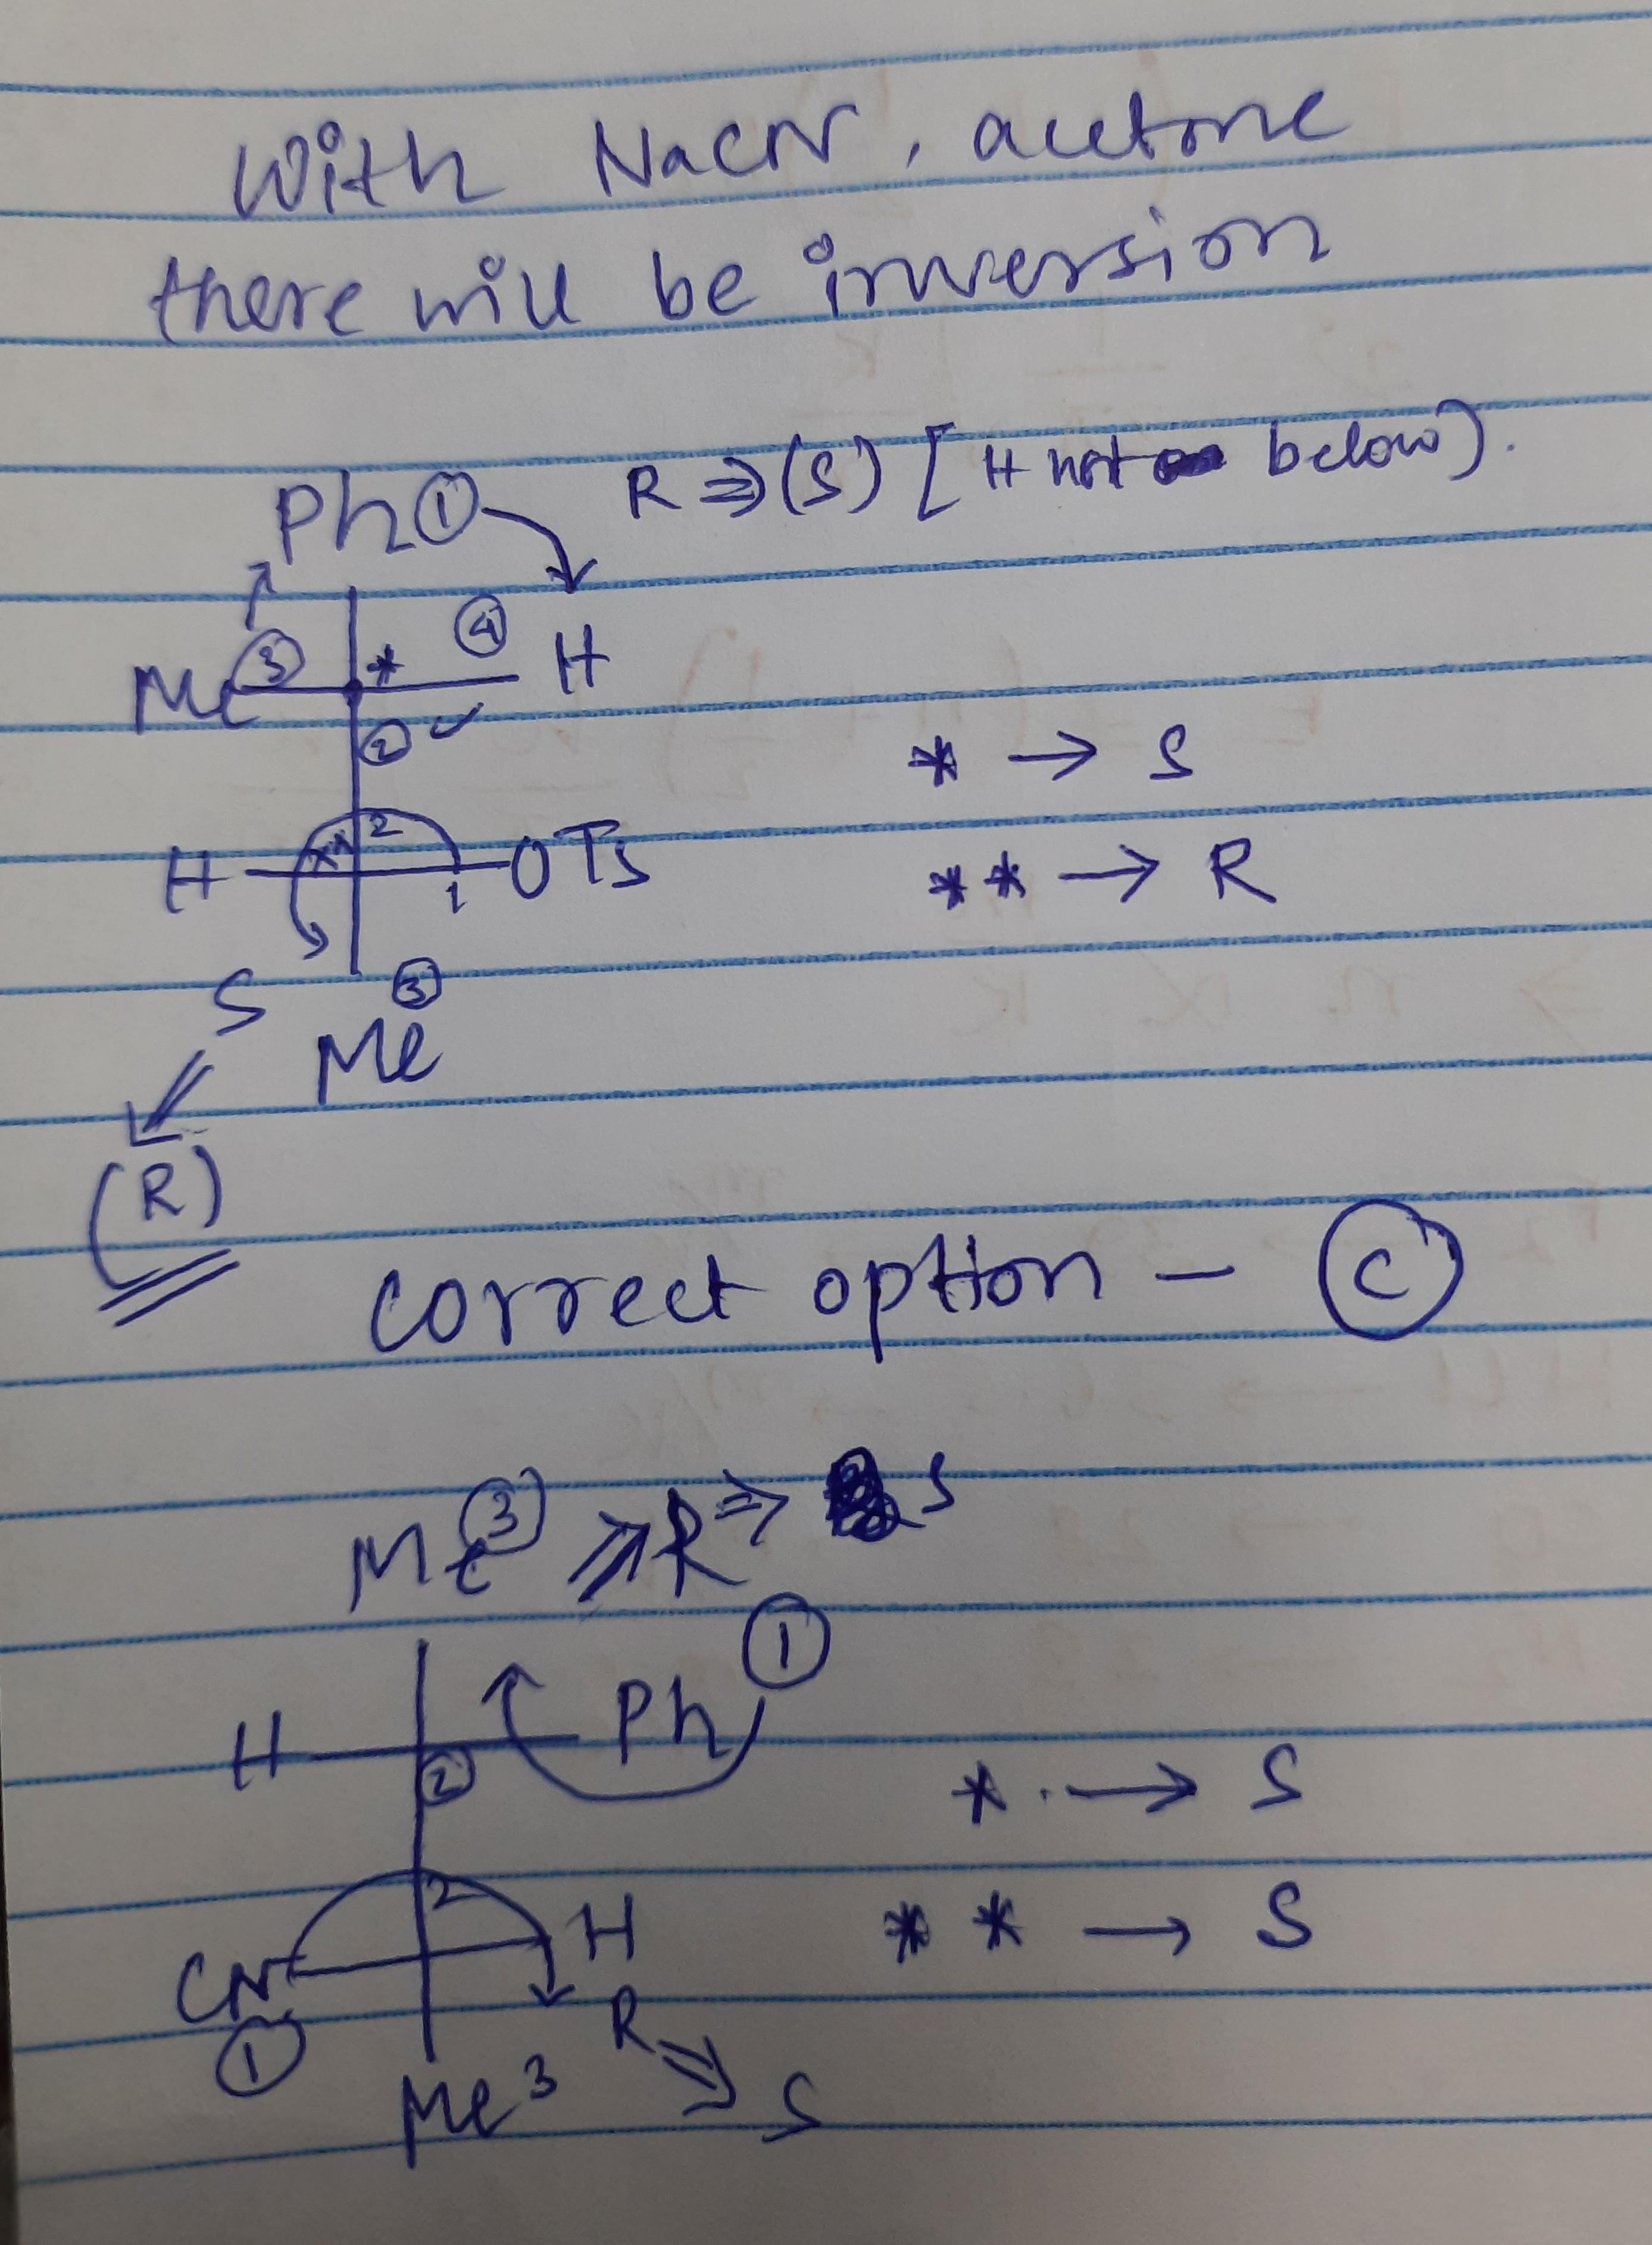 With NaCN, acetone
there will be inversion
Ph ① R ⇒ (S) [H not below).
Me ③ * ④ H
② ✓
* → S
H ** 2 1 OTs
** → R
S ③
Me
(R)
correct option - ⓒ
Me ③ ⇒ R ⇒ S
①
H Ph
②
* → S
2 H
** → S
CN
① R ⇒ S
Me 3